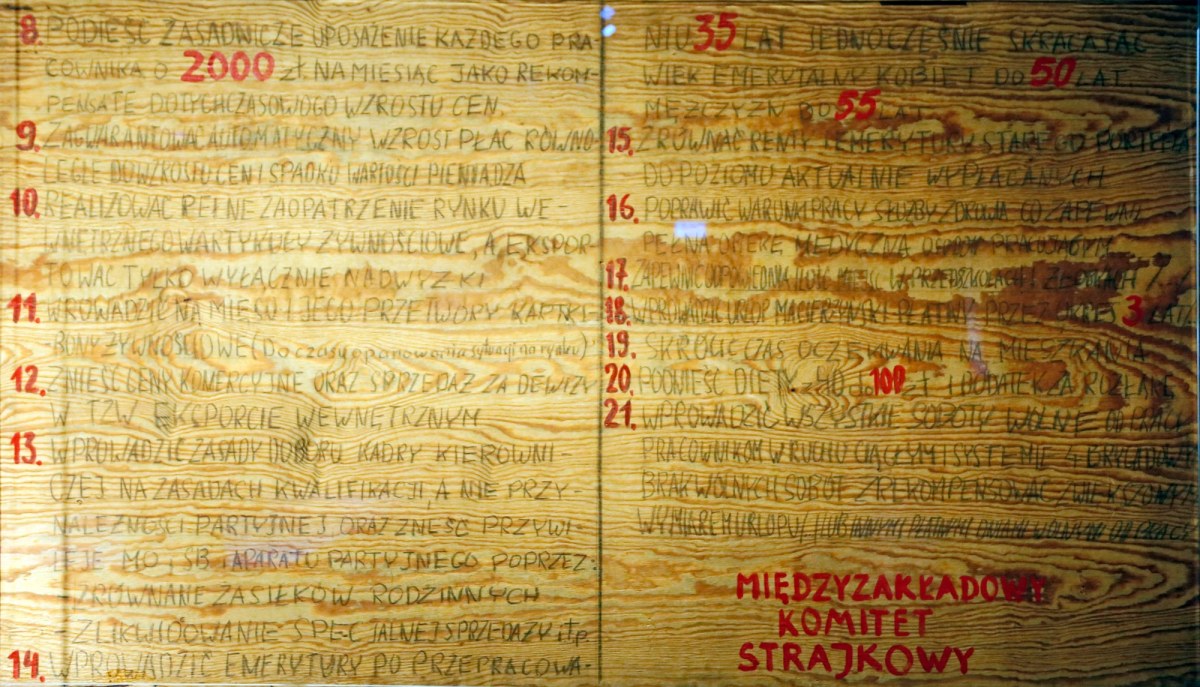 8. PODIEŚĆ ZASADNICZE UPOSAŻENIE KAŻDEGO PRA-
COWNIKA O 2000 zł. NA MIESIĄC JAKO REKOM-
PENSATĘ DOTYCHCZASOWOGO WZROSTU CEN.
9. ZAGWARANTOWAĆ AUTOMATYCZNY WZROST PŁAC RÓWNO-
LEGLE DO WZROSTU CEN I SPADKU WARTOŚCI PIENIĄDZA
10. REALIZOWAĆ PEŁNE ZAOPATRZENIE RYNKU WE-
WNĘTRZNEGO W ARTYKUŁY ŻYWNOŚCIOWE, A EKSPOR-
TOWAĆ TYLKO WYŁĄCZNIE NADWYŻKI
11. WROWADZIĆ NA MIĘSO I JEGO PRZETWORY KARTKI-
-BONY ŻYWNOŚCIOWE (Do czasu opanowania sytuacji na rynku)
12. ZNIEŚĆ CENY KOMERCYJNE ORAZ SPRZEDAŻ ZA DEWIZY
W TZW. EKSPORCIE WEWNĘTRZNYM
13. WPROWADZIĆ ZASADY DOBORU KADRY KIEROWNI-
CZEJ NA ZASADACH KWALIFIKACJI, A NIE PRZY-
NALEŻNOŚCI PARTYJNEJ ORAZ ZNEŚĆ PRZYWI-
LEJE MO, SB I APARATU PARTYJNEGO POPRZEZ:
- ZRÓWNANE ZASIŁKÓW RODZINNYCH
- ZLIKWIDOWANIE SPECJALNEJ SPRZEDAŻY itp.
14. WPROWADZIĆ EMERYTURY PO PRZEPRACOWA-
NIU 35 LAT JEDNOCZEŚNIE SKRACAJĄC
WIEK EMERYTALNY KOBIET DO 50 LAT
MĘŻCZYZN DO 55 LAT
15. ZRÓWNAĆ RENTY I EMERYTURY STAREGO PORTFELA
DO POZIOMU AKTUALNIE WYPŁACANYCH
16. POPRAWIĆ WARUNKI PRACY SŁUŻBY ZDROWIA CO ZAPEWNI
PEŁNĄ OPIEKĘ MEDYCZNĄ OSOBOM PRACUJĄCYM
17. ZAPEWNIĆ ODPOWIEDNIĄ ILOŚĆ MIEJSC W PRZEDSZKOLACH I ŻŁOBKACH
18. WPROWADZIĆ URLOP MACIERZYŃSKI PŁATNY PRZEZ OKRES 3 LATA
19. SKRÓCIĆ CZAS OCZEKIWANIA NA MIESZKANIA
20. PODNIEŚĆ DIETY Z 40 DO 100 ZŁ. I DODATEK ZA ROZŁĄKĘ
21. WPROWADZIĆ WSZYSTKIE SOBOTY WOLNE OD PRACY
PRACOWNIKOM W RUCHU CIĄGŁYM I SYSTEMIE 4 BRYGADOWYM
BRAK WOLNYCH SOBÓT ZREKOMPENSOWAĆ ZWIĘKSZONYM
WYMIAREM URLOPU / LUB INNYMI PŁATNYMI DNIAMI WOLNYMI OD PRACY
MIĘDZYZAKŁADOWY
KOMITET
STRAJKOWY